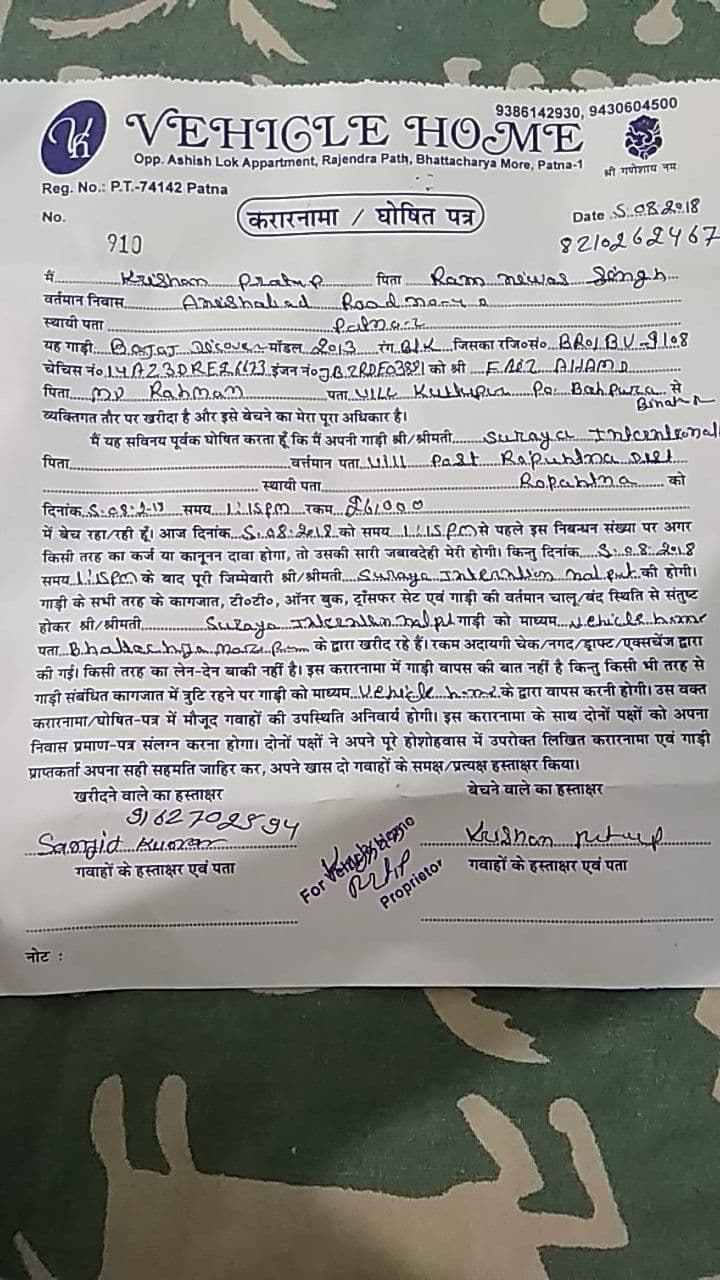 9386142930, 9430604500
VK VEHICLE HOME
Opp. Ashish Lok Appartment, Rajendra Path, Bhattacharya More, Patna-1
श्री गणेशाय नमः
Reg. No.: P.T.-74142 Patna
No. 910
करारनामा / घोषित पत्र
Date 5.08.2018
8210262467
मैं Krishan Pratap पिता Ram newas Singh
वर्तमान निवास Anishabad Road
स्थायी पता Patna-2
यह गाड़ी Bajaj Discover मॉडल 2013 रंग Blk जिसका रजि०सं० BR01BV-9108
चेचिस नं० इंजन नं० को श्री AHAMD
पिता MD Rahman पता Vill Po. Bahpura से
व्यक्तिगत तौर पर खरीदा है और इसे बेचने का मेरा पूरा अधिकार है।
मैं यह सविनय पूर्वक घोषित करता हूँ कि मैं अपनी गाड़ी श्री/श्रीमती Suraya
पिता वर्त्तमान पता Vill Post
स्थायी पता को
दिनांक समय 1:15pm रकम 26,000
में बेच रहा/रही हूँ। आज दिनांक 5.08.2018 को समय 1:15pm से पहले इस निबन्धन संख्या पर अगर
किसी तरह का कर्ज या कानूनन दावा होगा, तो उसकी सारी जवाबदेही मेरी होगी। किन्तु दिनांक 5.08.2018
समय 1:15pm के बाद पूरी जिम्मेवारी श्री/श्रीमती Suraya की होगी।
गाड़ी के सभी तरह के कागजात, टी०टी०, ऑनर बुक, ट्राँसफर सेट एवं गाड़ी की वर्तमान चालू/बंद स्थिति से संतुष्ट
होकर श्री/श्रीमती Suraya गाड़ी को माध्यम Vehicle home
पता के द्वारा खरीद रहे हैं। रकम अदायगी चेक/नगद/ड्राफ्ट/एक्सचेंज द्वारा
की गई। किसी तरह का लेन-देन बाकी नहीं है। इस करारनामा में गाड़ी वापस की बात नहीं है किन्तु किसी भी तरह से
गाड़ी संबंधित कागजात में त्रुटि रहने पर गाड़ी को माध्यम Vehicle home के द्वारा वापस करनी होगी। उस वक्त
करारनामा/घोषित-पत्र में मौजूद गवाहों की उपस्थिति अनिवार्य होगी। इस करारनामा के साथ दोनों पक्षों को अपना
निवास प्रमाण-पत्र संलग्न करना होगा। दोनों पक्षों ने अपने पूरे होशोहवास में उपरोक्त लिखित करारनामा एवं गाड़ी
प्राप्तकर्ता अपना सही सहमति जाहिर कर, अपने खास दो गवाहों के समक्ष/प्रत्यक्ष हस्ताक्षर किया।
खरीदने वाले का हस्ताक्षर बेचने वाले का हस्ताक्षर
9162702594
Sanjid Kumar Krishan
गवाहों के हस्ताक्षर एवं पता For Proprietor गवाहों के हस्ताक्षर एवं पता
नोट :